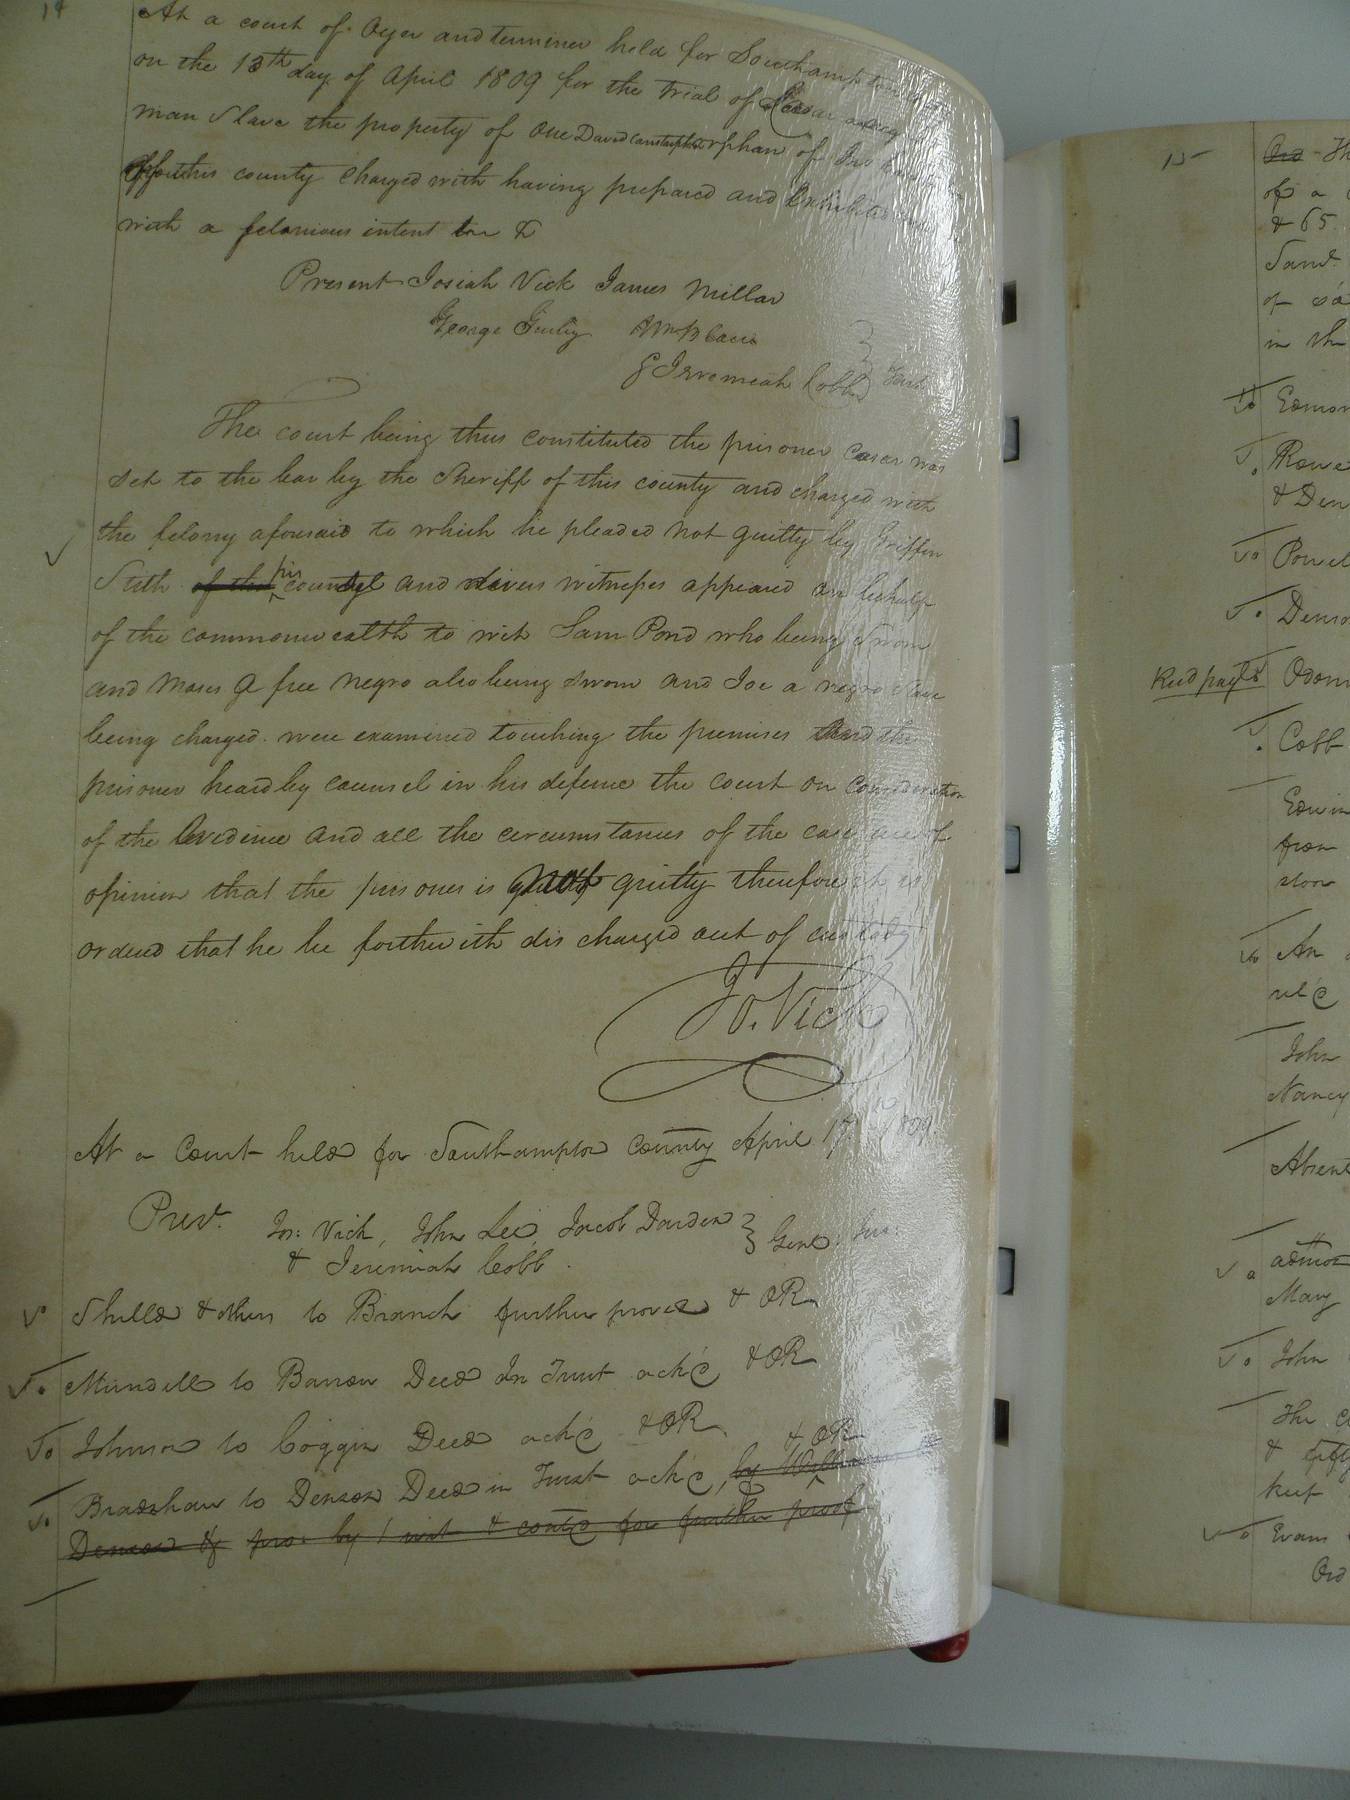 14
At a court of Oyer and terminer held for Southampton
on the 13th day of April 1809 for the trial of Ceasar a
man Slave the property of One David orphan of
of this county Charged with having prepared and Exhibited
with a felonious intent &
Present Josiah Vick James Millar
George Gurley
& Jeremiah Cobb } Just
The court being thus constituted the prisoner Ceasar was
set to the bar by the Sheriff of this county and charged with
the felony aforesaid to which he pleaded not guilty by Griffin
Stith of this his councyl and divers witnesses appeared on behalf
of the commonwealth to wit Sam Pond who being Sworn
and Moses A free negro also being sworn and Joe a negro Slave
being charged were examined touching the premises and the
prisoner heard by counsel in his defence the court on consideration
of the Evidence and all the circumstances of the case are of
opinion that the prisoner is not guilty therefore it is
ordered that he be forthwith discharged out of custody
Jo. Vick
At a Court held for Southampton County April 17th 1809.
Prest. Jos: Vick, John Lee, Jacob Darden } Gent: Jus:
& Jeremiah Cobb.
Shelld & others to Branch further proved & OR
Mundell to Barrow Deed In Trust ack'd & OR
Johnson to Coggin Deed ack'd & OR
& OR
Bradshaw to Denson Deed in Trust ack'd, by William
Denson & pro: by 1 wit & contd for further proof
15 Ord Th
of a
& 65.
Sand.
of sd
in the
Edmon
Rowe
& Den
Powel
Denso
Recd pages Odom
Cobb
Edwin
from
An
John
Nancy
Absent
admor
Mary
John
The C
& fifty
keep
Evans
Ord